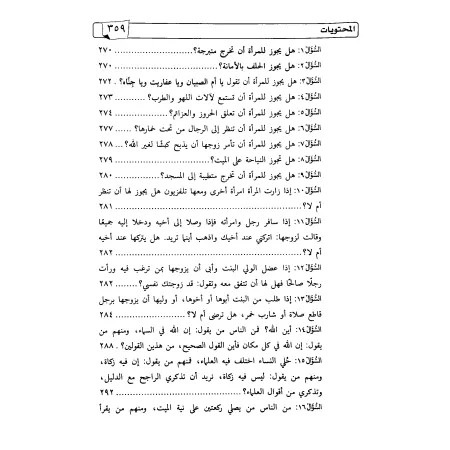 المحتويات ٣٥٩
السُّؤال١: هل يجوز للمرأة أن تخرج متبرجة؟ ........................ ٢٧٠
السُّؤال٢: هل يجوز الحلف بالأمانة؟ ........................ ٢٧٠
السُّؤال٣: هل يجوز للمرأة أن تقول يا أم الصبيان ويا عفاريت ويا جِنَّاه؟ . ٢٧٢
السُّؤال٤: هل يجوز للمرأة أن تستمع لآلات اللهو والطرب؟ ........... ٢٧٣
السُّؤال٥: هل يجوز للمرأة أن تعلق الحروز والعزائم؟ ................ ٢٧٤
السُّؤال٦: هل يجوز للمرأة أن تنظر إلى الرجال من تحت خمارها؟ ...... ٢٧٧
السُّؤال٧: هل يجوز للمرأة أن تأمر زوجها أن يذبح كبشًا لغير الله؟ .. ٢٧٨
السُّؤال٨: هل تجوز النياحة على الميت؟ ........................ ٢٧٩
السُّؤال٩: هل يجوز للمرأة أن تخرج متطيبة إلى المسجد؟ ............. ٢٨٠
السُّؤال١٠: إذا زارت المرأة امرأة أخرى ومعها تلفزيون هل يجوز لها أن تنظر
أم لا؟ ........................ ٢٨١
السُّؤال١١: إذا سافر رجل وامرأته فإذا وصلا إلى أخيه ودخلا إليه جميعًا
وقالت لزوجها: اتركني عند أخيك واذهب أينما تريد. هل يتركها عند أخيه
أم لا؟ ........................ ٢٨٢
السُّؤال١٢: إذا عضل الولي البنت وأبى أن يزوجها بمن ترغب فيه ورأت
رجلًا صالحًا فهل لها أن تتفق معه وتقول: قد زوجتك نفسي؟ ........ ٢٨٢
السُّؤال١٣: إذا طلب من البنت أبوها أو أخوها، أو وليها أن يزوجها برجل
قاطع صلاة أو شارب خمر، هل ترضى أم لا؟ ................ ٢٨٤
السُّؤال١٤: أين الله؟ فمن الناس من يقول: إن الله في السماء، ومنهم من
يقول: إن الله في كل مكان فأين القول الصحيح، من هذين القولين؟ . ٢٨٨
السُّؤال١٥: حُلي النساء اختلف فيه العلماء، فمنهم من يقول: إن فيه زكاة،
ومنهم من يقول: ليس فيه زكاة، نريد أن تذكري الراجح مع الدليل،
وتذكري من أقوال العلماء؟ ........................ ٢٩٢
السُّؤال١٦: من الناس من يصلي ركعتين على نية الميت، ومنهم من يقرأ